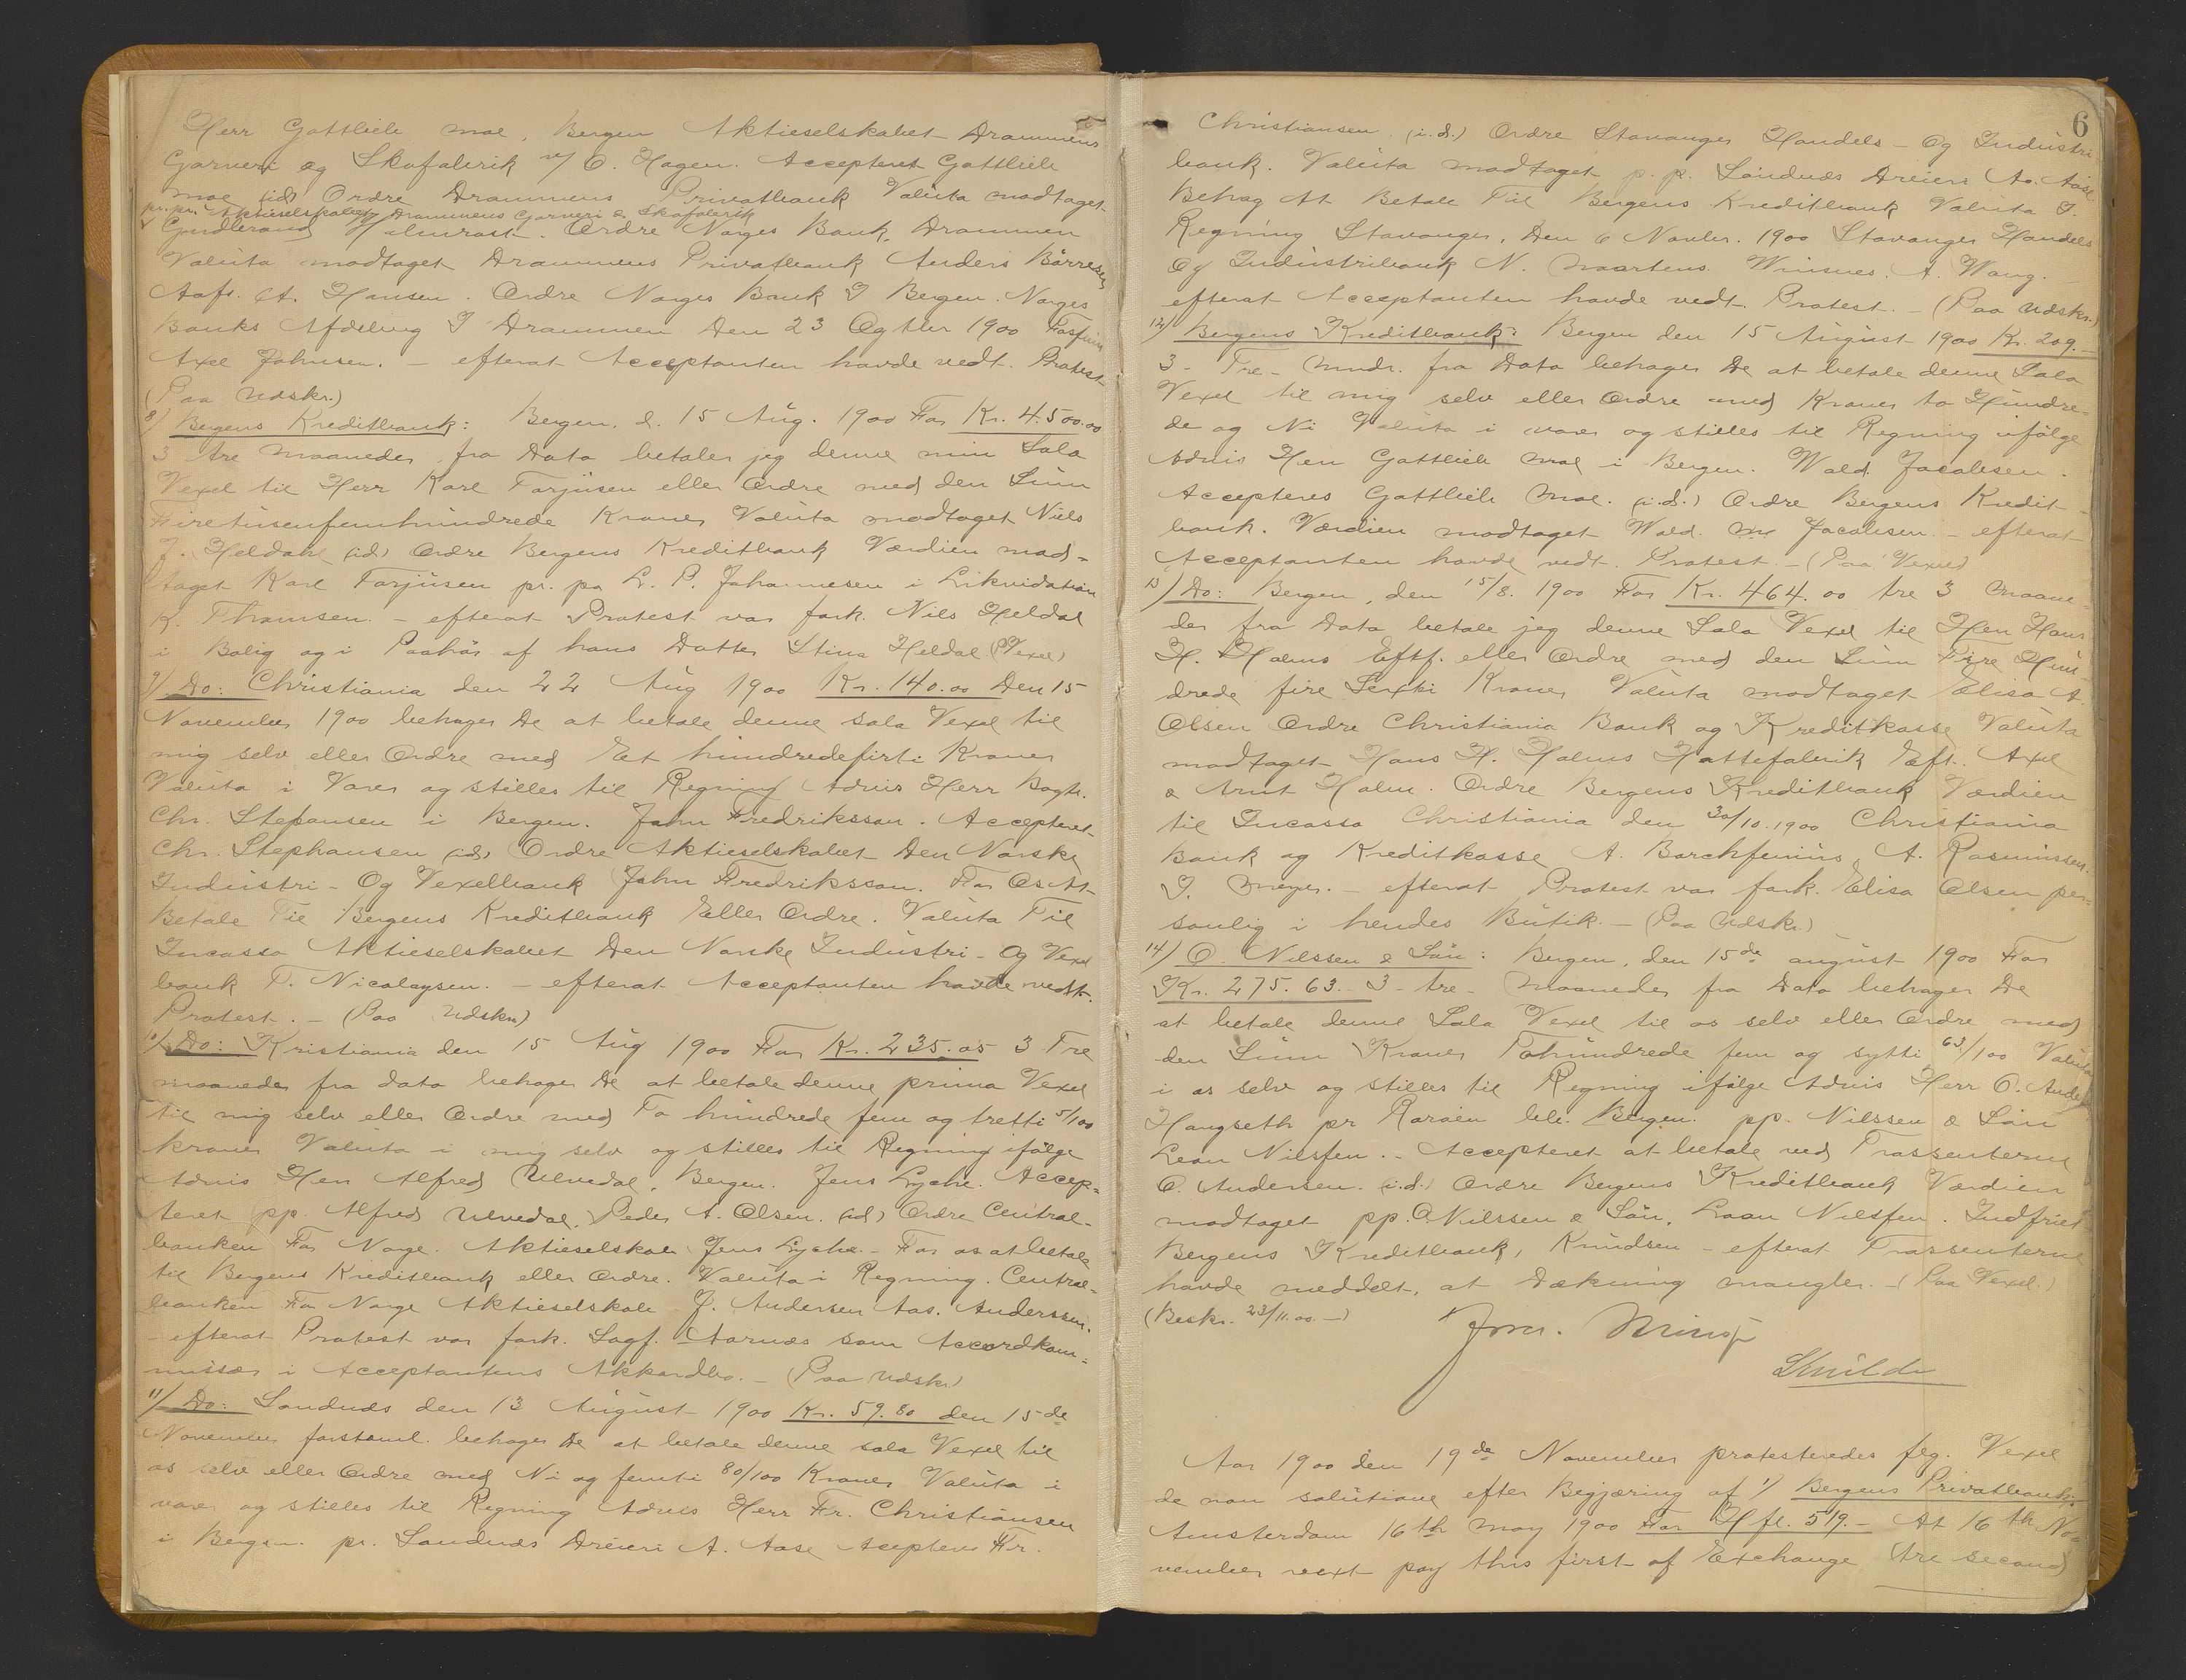 Herr Gottlieb Moe, Bergen Aktieselskabet Drammens
Garveri og Skofabrik v/ O. Hagen. Accepteret Gottlieb
Moe (id) Ordre Drammens Privatbank Valuta modtaget
pr. pr. Aktieselskabet Drammens Garveri & Skofabrik
Halmrast. Ordre Norges Bank, Drammen
Valuta modtaget Drammens Privatbank Anders Børresen
Aafs. A. Hansen. Ordre Norges Bank I Bergen. Norges
Banks Afdeling I Drammen Den 23 Ogtbr 1900
Axel Johnsen. – efterat Acceptanten havde vedt. Protest
(Paa Udskr.)
8) Bergens Kreditbank: Bergen, d. 15 Aug. 1900 For Kr. 4.500.00
3 tre Maaneder fra Dato betaler jeg denne min Sola
Vexel til Herr Karl Torjusen eller Ordre med den Sum
Firetusenfemhundrede Kroner Valuta modtaget Niels
J. Heldal (id) Ordre Bergens Kreditbank Værdien mod-
taget Karl Torjusen pr. pa L. P. Johannesen i Likvidation
K. Thomsen. – efterat Protest var fork. Nils Heldal
i Bolig og i Paahør af hans Datter Stina Heldal (P Vexel)
9) Do: Christiania den 22 Aug 1900 Kr. 140.00 Den 15
November 1900 behager De at betale denne sola Vexel til
mig selv eller Ordre med Et hundredefirti Kroner
Valuta i Varer og stilles til Regning Advis Herr Bogh.
Chr. Stepansen i Bergen. John Fredriksson. Accepteret
Chr. Stephansen (id) Ordre Aktieselskabet Den Norske
Industri- Og Vexelbank John Fredriksson. For Os At
Betale Til Bergens Kreditbank Eller Ordre. Valuta Til
Incasso Aktieselskabet Den Norske Industri- Og Vexel
bank T. Nicolaysen. – efterat Acceptanten havde vedt.
Protest. – (Paa Udskr)
10) Do: Kristiania den 15 Aug 1900 For Kr. 235.05 3 Tre
maaneder fra dato behager De at betale denne prima Vexel
til mig selv eller Ordre med To hundrede fem og tretti 5/100
kroner Valuta i mig selv og stilles til Regning ifølge
Advis Herr Alfred Ulvedal, Bergen. Jens Lyche. Accep-
teret pp. Alfred Ulvedal, Peder A. Olsen. (id) Ordre Central-
banken For Norge. Aktieselskab Jens Lyche – For os at betale
til Bergens Kreditbank eller Ordre. Valuta i Regning. Central-
banken For Norge Aktieselskab J. Andersen Aas. Anderssen.
– efterat Protest var fork. Sagf. Aarnæs som Accordkom-
missær i Acceptantens Akkordbo. – (Paa Udskr)
11) Do: Sandnæs den 13 August 1900 Kr. 59.80 den 15de
November førstoml. behager De at betale denne sola Vexel til
os selv eller Ordre med Ni og femti 80/100 Kroner Valuta i
varer og stilles til Regning Advis Herr Fr. Christiansen
i Bergen. pr. Sandnæs Dreieri A. Aase Acepteres Fr.
6
Christiansen. (i.d.) Ordre Stavanger Handels- Og Industri
bank. Valuta modtaget p.p. Sandnæs Dreieri A. Aase
Behag At Betale Til Bergens Kreditbank Valuta I.
Regning Stavanger, Den 6 Novbr. 1900 Stavanger Handels
Og Industribank N. Maartens Winsnes. A. Wang.
efterat Acceptanten havde vedt. Protest. – (Paa Udskr.)
12) Bergens Kreditbank: Bergen den 15 August 1900 Kr. 209.–
3 – Tre – Mndr. fra Dato behager De at betale denne Sola
Vexel til mig selv eller Ordre med Kroner to Hundre-
de og Ni Valuta i varer og stilles til Regning ifølge
Advis Herr Gottlieb Moe i Bergen. Wald. Jacobsen.
Accepteres Gottlieb Moe. (i.d.) Ordre Bergens Kredit-
bank. Værdien modtaget Wald. Jacobsen. – efterat
Acceptanten havde vedt. Protest. – (Paa Vexel)
13) Do: Bergen, den 15/8. 1900 For Kr. 464.00 tre 3 Maane-
der fra Dato betale jeg denne Sola Vexel til Herr Hans
H. Holms Eftf. eller Ordre med den Sum Fire Hun-
drede fire Sexti Kroner Valuta modtaget Elisa A.
Olsen Ordre Christiania Bank og Kreditkasse Valuta
modtaget Hans H. Holms Hattefabrik Eft. Axel
& Arnt Holm. Ordre Bergens Kreditbank Værdien
til Incasso Christiania den 30/10.1900 Christiania
Bank og Kreditkasse A. Borchgrevins A. Rasmussen
I. Meyer. – efterat Protest var fork. Elisa Olsen per-
sonlig i hendes Butik. – (Paa Udskr.)
14) O. Nilssen & Søn: Bergen, den 15de august 1900 For
Kr. 275.63. – 3 – tre – Maaneder fra Dato behager De
at betale denne Sola Vexel til os selv eller Ordre med
den Sum Kroner Tohundrede fem og sytti 63/100 Valuta
i os selv og stilles til Regning ifølge Advis Herr O. Ander
Haugseth pr Bergen. pp. Nilssen & Søn
Leon Nilssen. – Accepteret at betale ved Trassenterne
O. Andersen. (i.d.) Ordre Bergens Kreditbank Værdien
modtaget pp. O. Nilssen & Søn, Nilssen. Indfriet
Bergens Kreditbank, Knudsen – efterat Trassenterne
havde meddelt, at dækning mangler. – (Paa Vexel.)
(Beskr. 23/11.00. –)
Aar 1900 den 19de November protesteredes flg. Vexel
de non solutione efter Begjæring af 1) Bergens Privatbank:
Amsterdam 16th May 1900 For Hfl. 519. – At 16th No-
vember next pay this first of Exchange (tre second